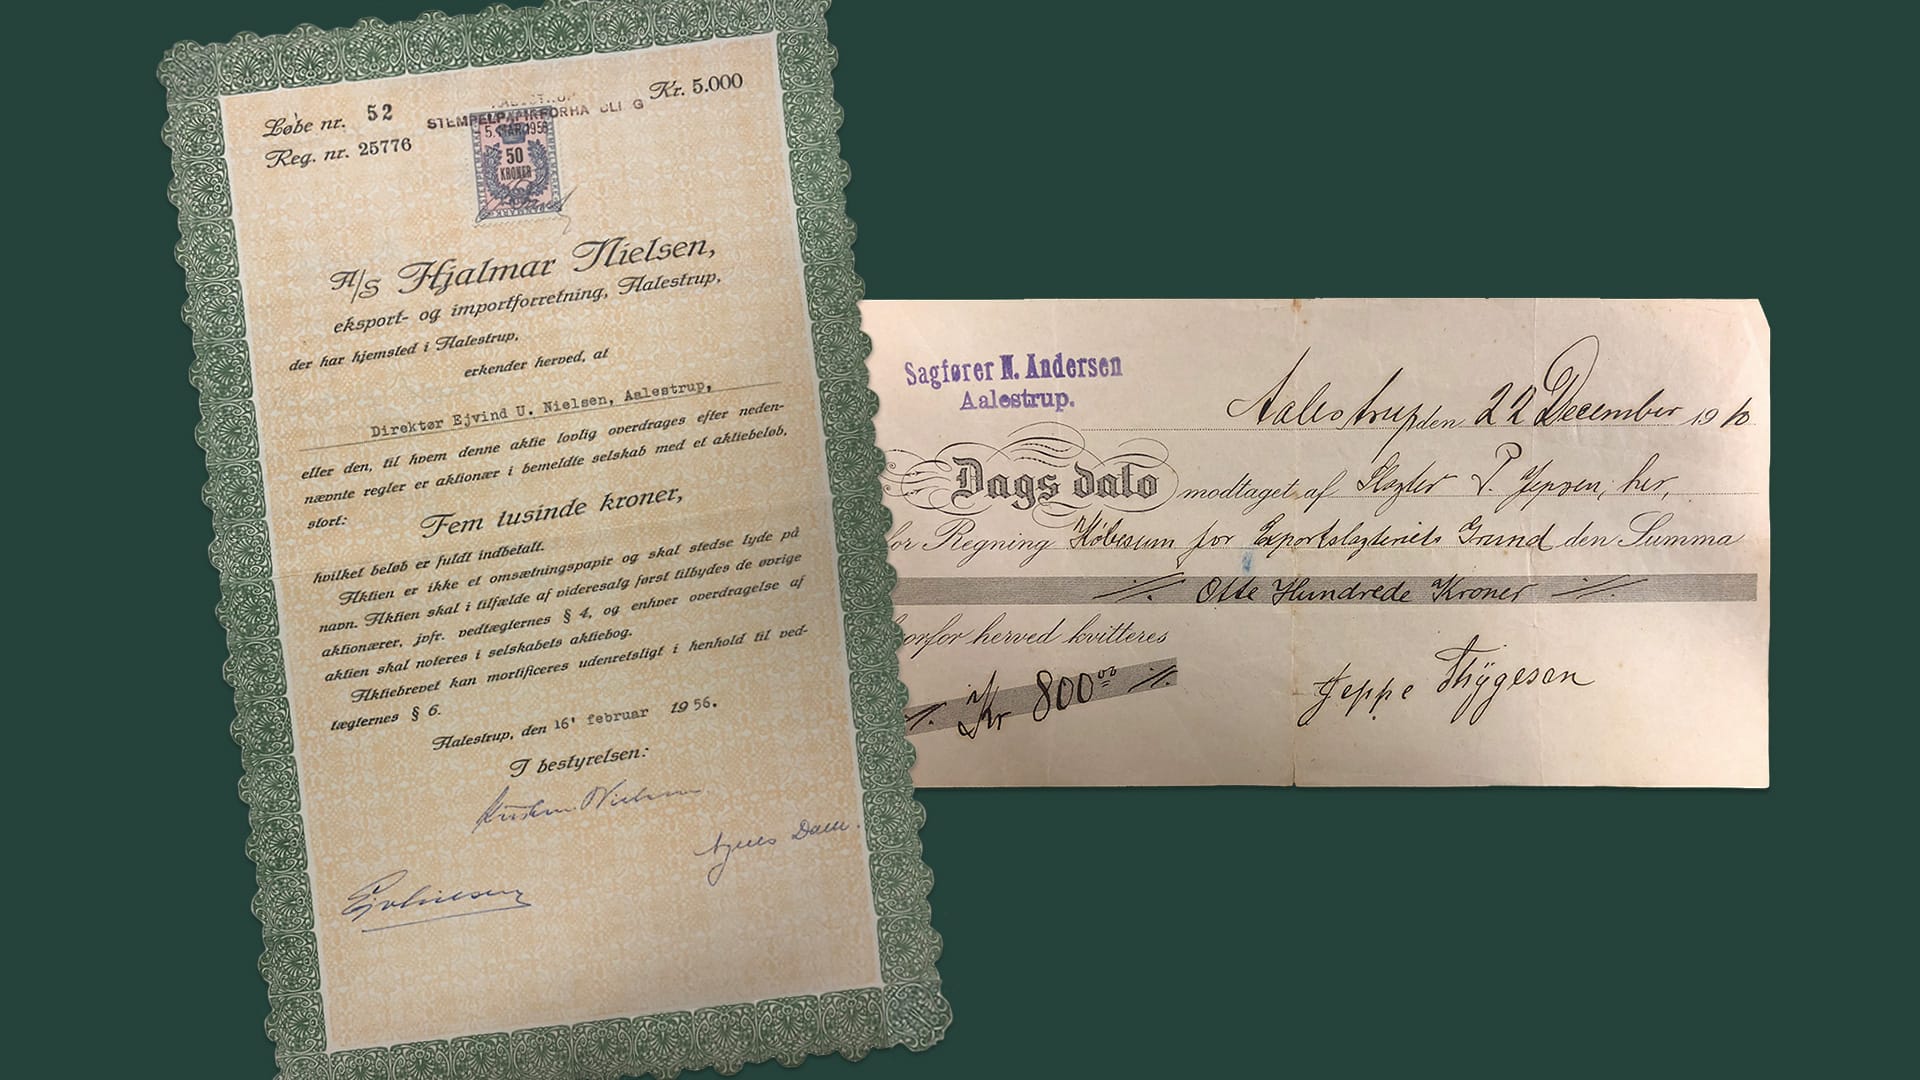 Løbe nr. 52
Reg. nr. 25776
Kr. 5.000
STEMPELPAPIRFORHA DLI G
5. MAR. 1956
50
KRONER
A/S Hjalmar Nielsen,
eksport- og importforretning, Aalestrup,
der har hjemsted i Aalestrup,
erkender herved, at
Direktør Ejvind U. Nielsen, Aalestrup,
eller den, til hvem denne aktie lovlig overdrages efter neden-
nævnte regler er aktionær i bemeldte selskab med et aktiebeløb,
stort:
Fem tusinde kroner,
hvilket beløb er fuldt indbetalt.
Aktien er ikke et omsætningspapir og skal stedse lyde på
navn. Aktien skal i tilfælde af videresalg først tilbydes de øvrige
aktionærer, jvfr. vedtægternes § 4, og enhver overdragelse af
aktien skal noteres i selskabets aktiebog.
Aktiebrevet kan mortificeres udenretsligt i henhold til ved-
tægternes § 6.
Aalestrup, den 16' februar 1956.
I bestyrelsen:
Nielsen
Agnes Dam.
Sagfører N. Andersen
Aalestrup.
Aalestrup den 22 December 1910
Dags dato modtaget af Slagter P. Jepsen, her,
for Regning Købesum for Exportslagteriets Grund den Summa
Otte Hundrede Kroner
hvorfor herved kvitteres
Kr 800
Jeppe Thygesen